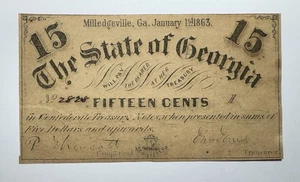 Milledgeville, Ga. January 1st 1863.
15 15
The State of Georgia
WILL PAY THE BEARER AT HER TREASURY
FIFTEEN CENTS
in Confederate Treasury Notes, when presented in sums of
Five Dollars and upwards.